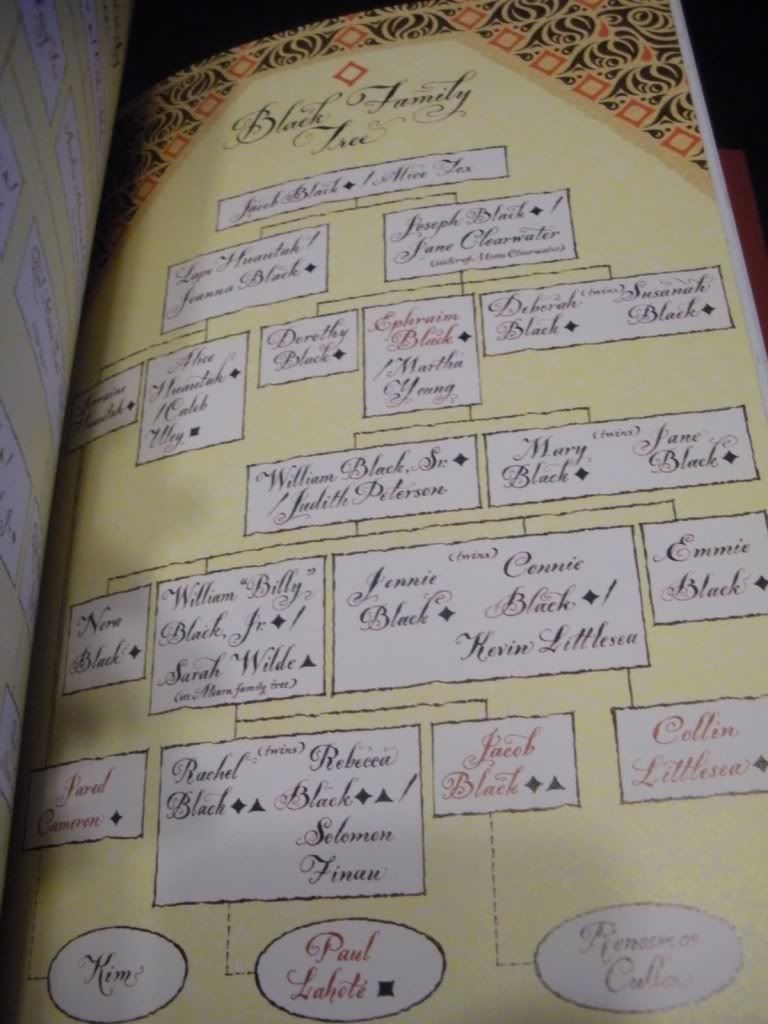 Black Family
Tree
Jacob Black ◆ / Alice Fox
Lapi Huautah /
Joanna Black ◆
Joseph Black ◆ /
Jane Clearwater
(sister of Moses Clearwater)
Huautah ◆
Alice
Huautah ◆
/ Caleb
Uley ■
Dorothy
Black ◆
Ephraim
Black ◆
/ Martha
Young
Deborah (twins) Susanah
Black ◆ Black ◆
William Black, Sr. ◆
/ Judith Peterson
Mary (twins) Jane
Black ◆ Black ◆
Nora
Black ◆
William "Billy"
Black, Jr. ◆ /
Sarah Wilde ▲
family tree)
Jennie (twins) Connie
Black ◆ Black ◆ /
Kevin Littlesea
Emmie
Black ◆
Jared
Cameron ◆
Rachel (twins) Rebecca
Black ◆▲ Black ◆▲ /
Solomon
Finau
Jacob
Black ◆▲
Collin
Littlesea ◆
Kim
Paul
Lahote ■
Renesmee
Cullen